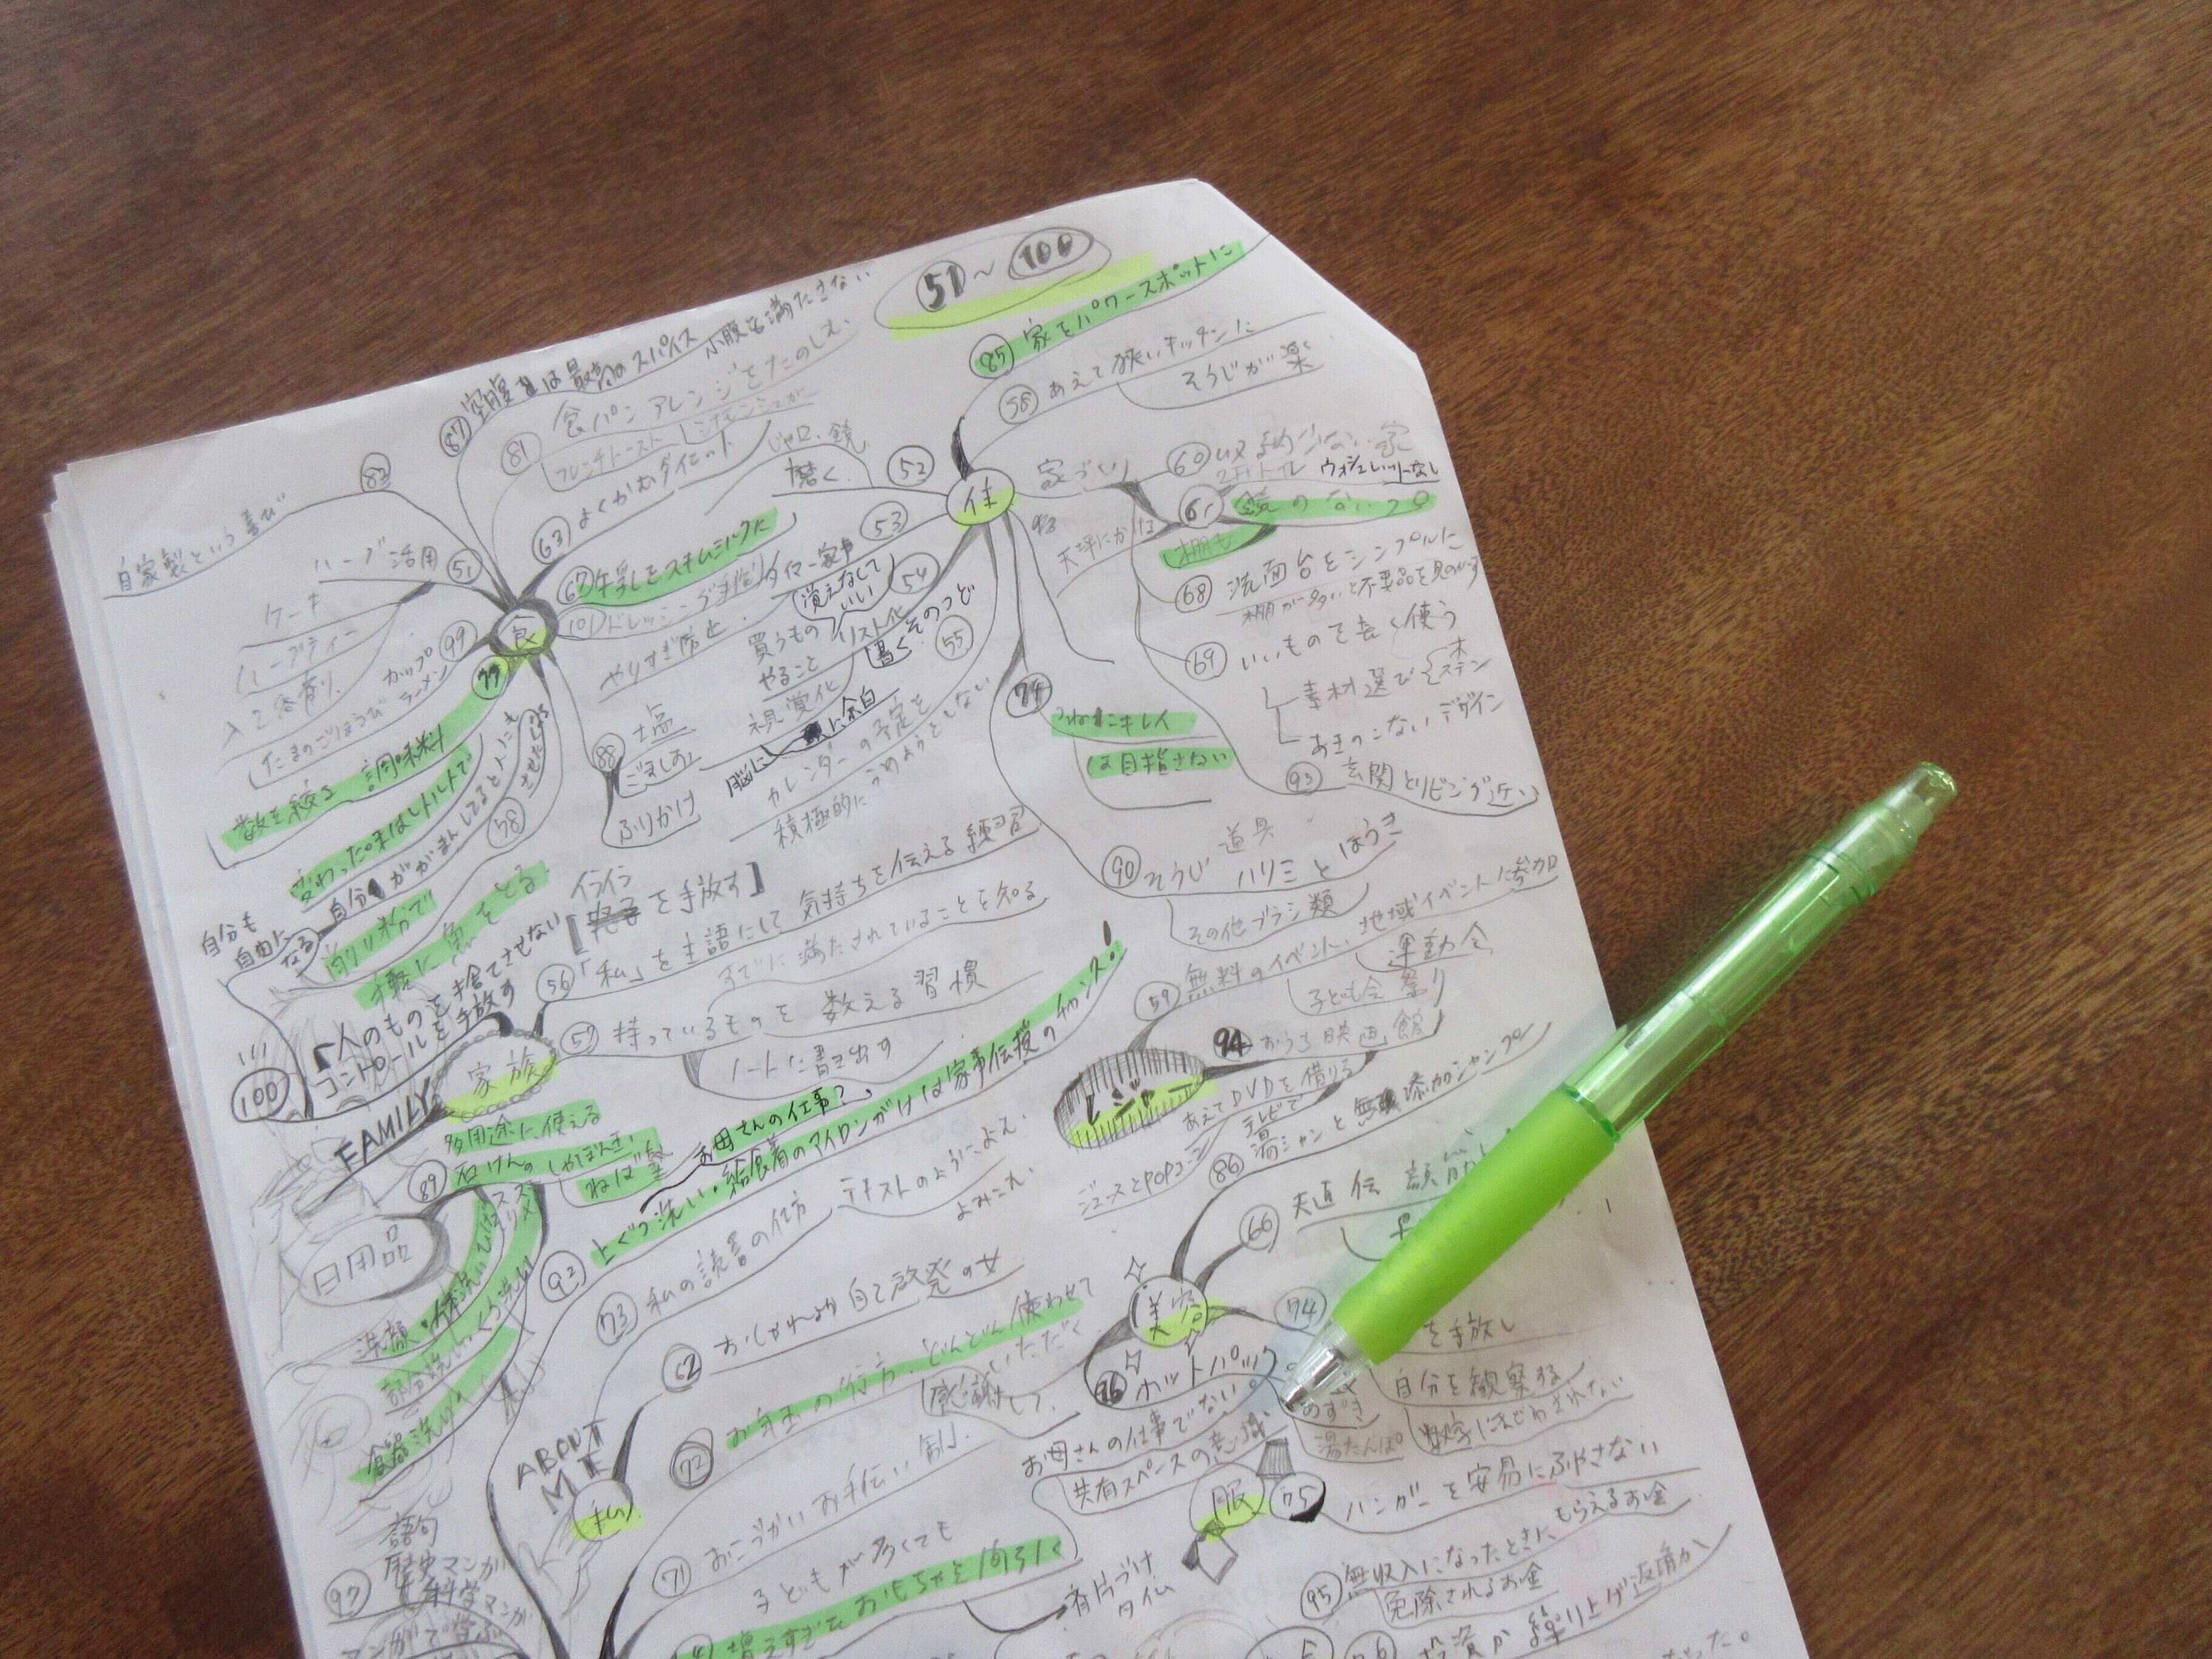 51～100
85 家をパワースポットに
58 あえて狭いキッチンに
そうじが楽
87 空腹は最高のスパイス 小腹を満たさない
81 食パンアレンジをたのしむ
フレンチトースト シナモンシュガー
63 よくかむダイエット
じゃ口、鏡
磨く
52
住
家づくり
60 収納少ない家
2F トイレ ウォシュレットなし
61 鏡のないフロ
棚も
天坪にかなた
68 洗面台をシンプルに
棚が多いと不要品を見のがす
69 いいものを長く使う
素材選び 木 ステン
あきのこないデザイン
93 玄関とリビング近い
82
自家製という喜び
ハーブ活用 51
ケーキ
ハーブティー
入る香り
食
67 牛乳をスキムミルクに
101 ドレッシング手作り
やりすぎ防止
53 タイマー家事
覚えなくていい
54
買うもの
やること
リスト化
書く そのつど
視覚化
脳に余白
55
カレンダーの予定を
積極的にうめようとしない
99 カップラーメン
たまのごほうび
77
数を絞る 調味料
変わった味はレトルトで
自分ががまんしてると人にもさせたくなる
78
自分も
自由に
なる
削り粉で
手軽に魚をとる
88 塩
ごましお
ふりかけ
79
つねにキレイ
は目指さない
90 そうじ 道具
ハリミとほうき
その他ブラシ類
イライラ
[を手放す]
56 「私」を主語にして気持ちを伝える練習
すでに満たされていることを知る
57 持っているものを数える習慣
ノートに書き出す
100
人のものを捨てさせない
コントロールを手放す
家族
FAMILY
59 無料のイベント、地域イベントに参加
運動会
子ども会 祭り
レジャー
94 おうち映画館
あえてDVDを借りる
テレビで
ジュースとPOPコーン
89 多用途に使える
石けんの
しゃぼん玉
ねば塾
日用品
洗顔・体洗い
部分洗い・くつ洗い
食器洗い
お母さんの仕事？
92 上ぐつ洗い、給食着のアイロンがけは家事伝授のチャンス！
73 私の読書の仕方
テキストのようによむ
よみこむ
62 おしゃれよりか自己啓発の女
72 お年玉の行方 どんどん使わせて
感謝して いただく
71 おこづかいお手伝い制
ABOUT ME
私
86 湯シャンと無添加シャンプー
66 夫直伝 顔筋
美容
74
を手放し
自分を観察する
数字にまどわされない
76 ホットパック
あずき
湯たんぽ
お母さんの仕事でない。
共有スペースの意識
服
75 ハンガーを安易にふやさない
95 無収入になったときに もらえるお金
免除されるお金
96 投資か繰り上ゲ返済か
子どもが多くても
増えすぎたおもちゃを
お片づけ
タイム
語句
97 歴史マンガ
科学マンガ
マンガで学ぶ